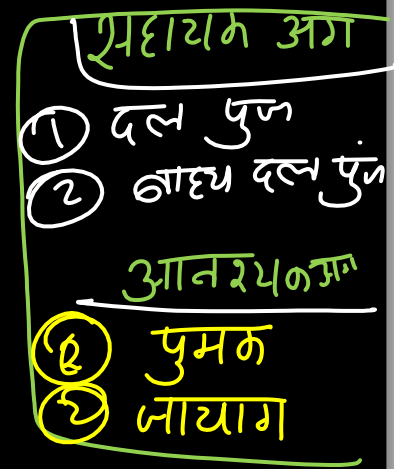 सहायक अंग
① दल पुंज
② बाह्य दल पुंज
आवश्यक अंग
① पुमंग
② जायांग